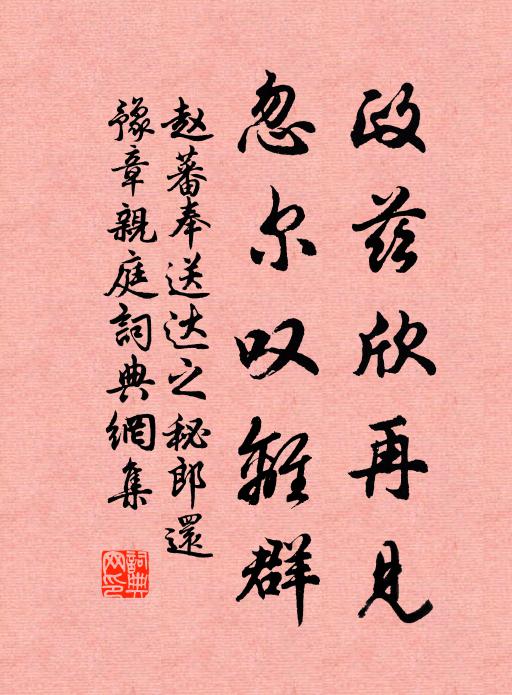 政兹欣再见
忽尔叹離群
赵蕃奉送达之秘郎還
豫章親庭詞典網集
詞典网印